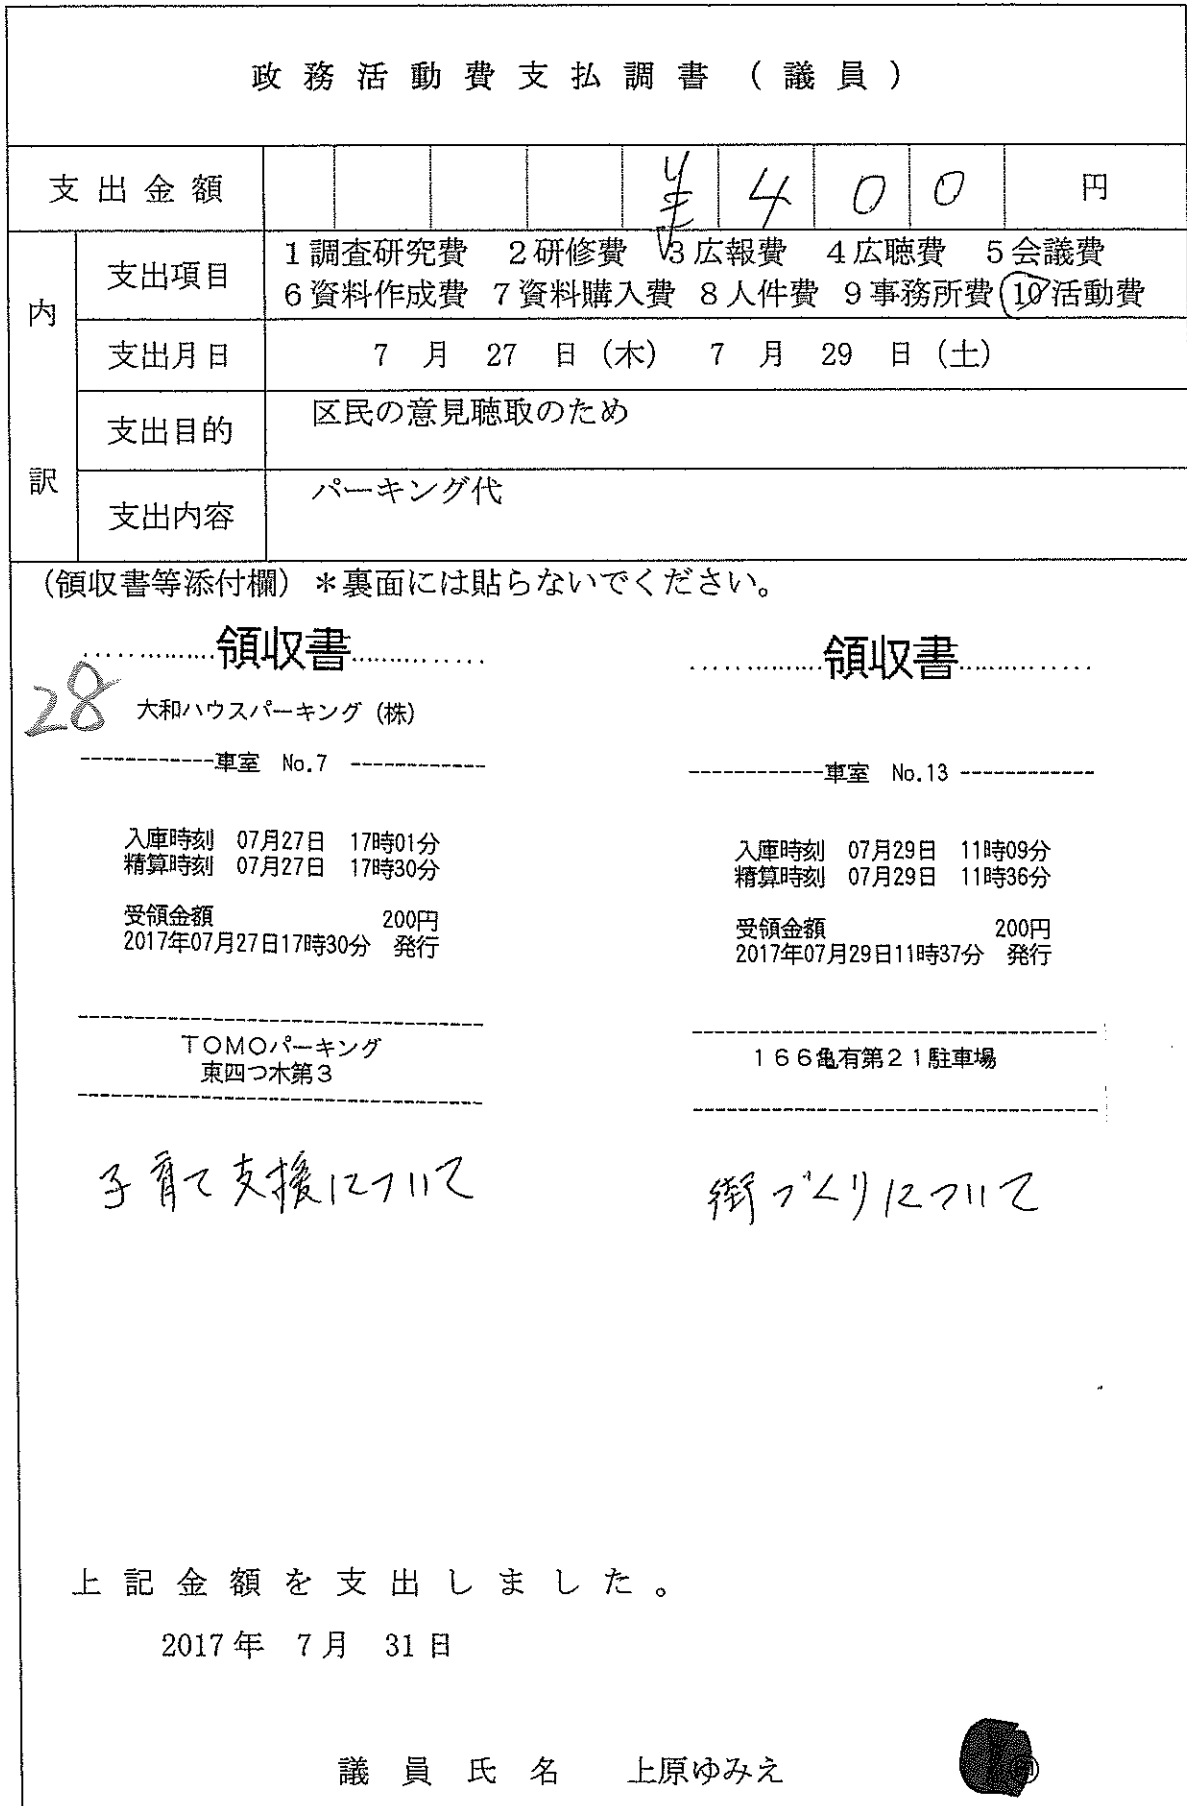 政務活動費支払調書（議員）
支出金額 ¥400 円
内訳
支出項目 1調査研究費 2研修費 3広報費 4広聴費 5会議費
6資料作成費 7資料購入費 8人件費 9事務所費 10活動費
支出月日 7月27日（木） 7月29日（土）
支出目的 区民の意見聴取のため
支出内容 パーキング代
（領収書等添付欄）＊裏面には貼らないでください。
28
領収書
大和ハウスパーキング（株）
車室 No.7
入庫時刻 07月27日 17時01分
精算時刻 07月27日 17時30分
受領金額 200円
2017年07月27日17時30分 発行
TOMOパーキング
東四つ木第3
子育て支援について
領収書
車室 No.13
入庫時刻 07月29日 11時09分
精算時刻 07月29日 11時36分
受領金額 200円
2017年07月29日11時37分 発行
166亀有第21駐車場
街づくりについて
上記金額を支出しました。
2017年 7月 31日
議員氏名 上原ゆみえ